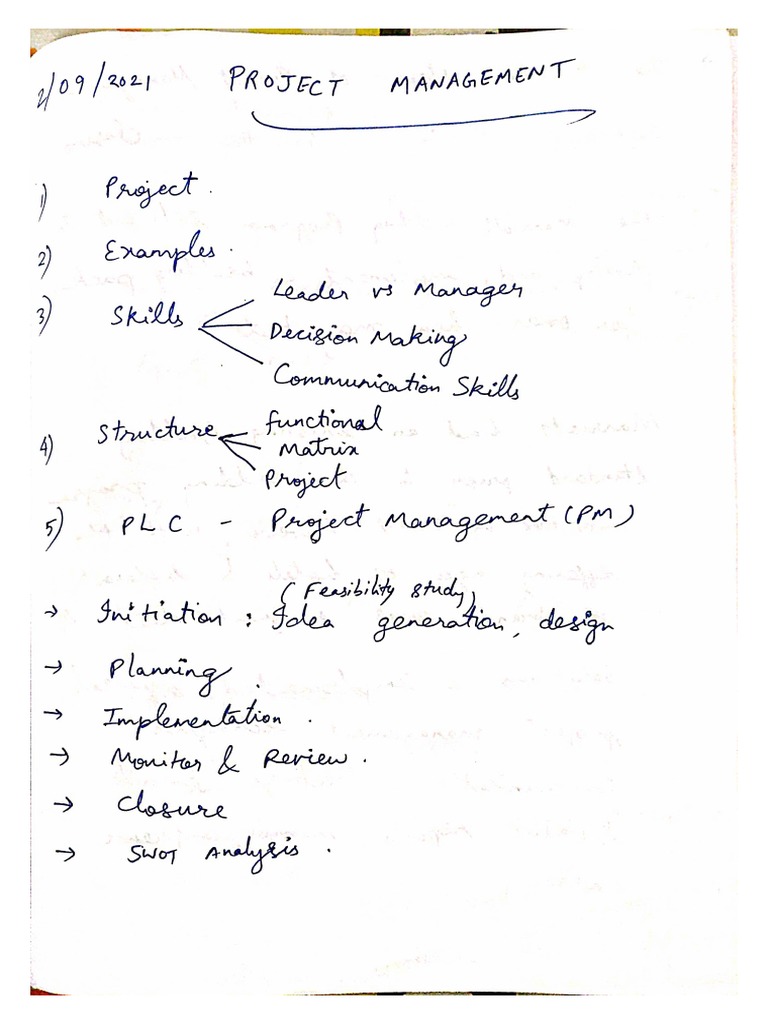 2/09/2021 PROJECT MANAGEMENT
1) Project.
2) Examples.
3) Skills
Leader vs Manager
Decision Making
Communication Skills
4) Structure
functional
Matrix
Project
5) PLC - Project Management (PM)
(Feasibility study)
→ Initiation : Idea generation, design
→ Planning.
→ Implementation.
→ Monitor & Review.
→ Closure
→ SWOT Analysis.